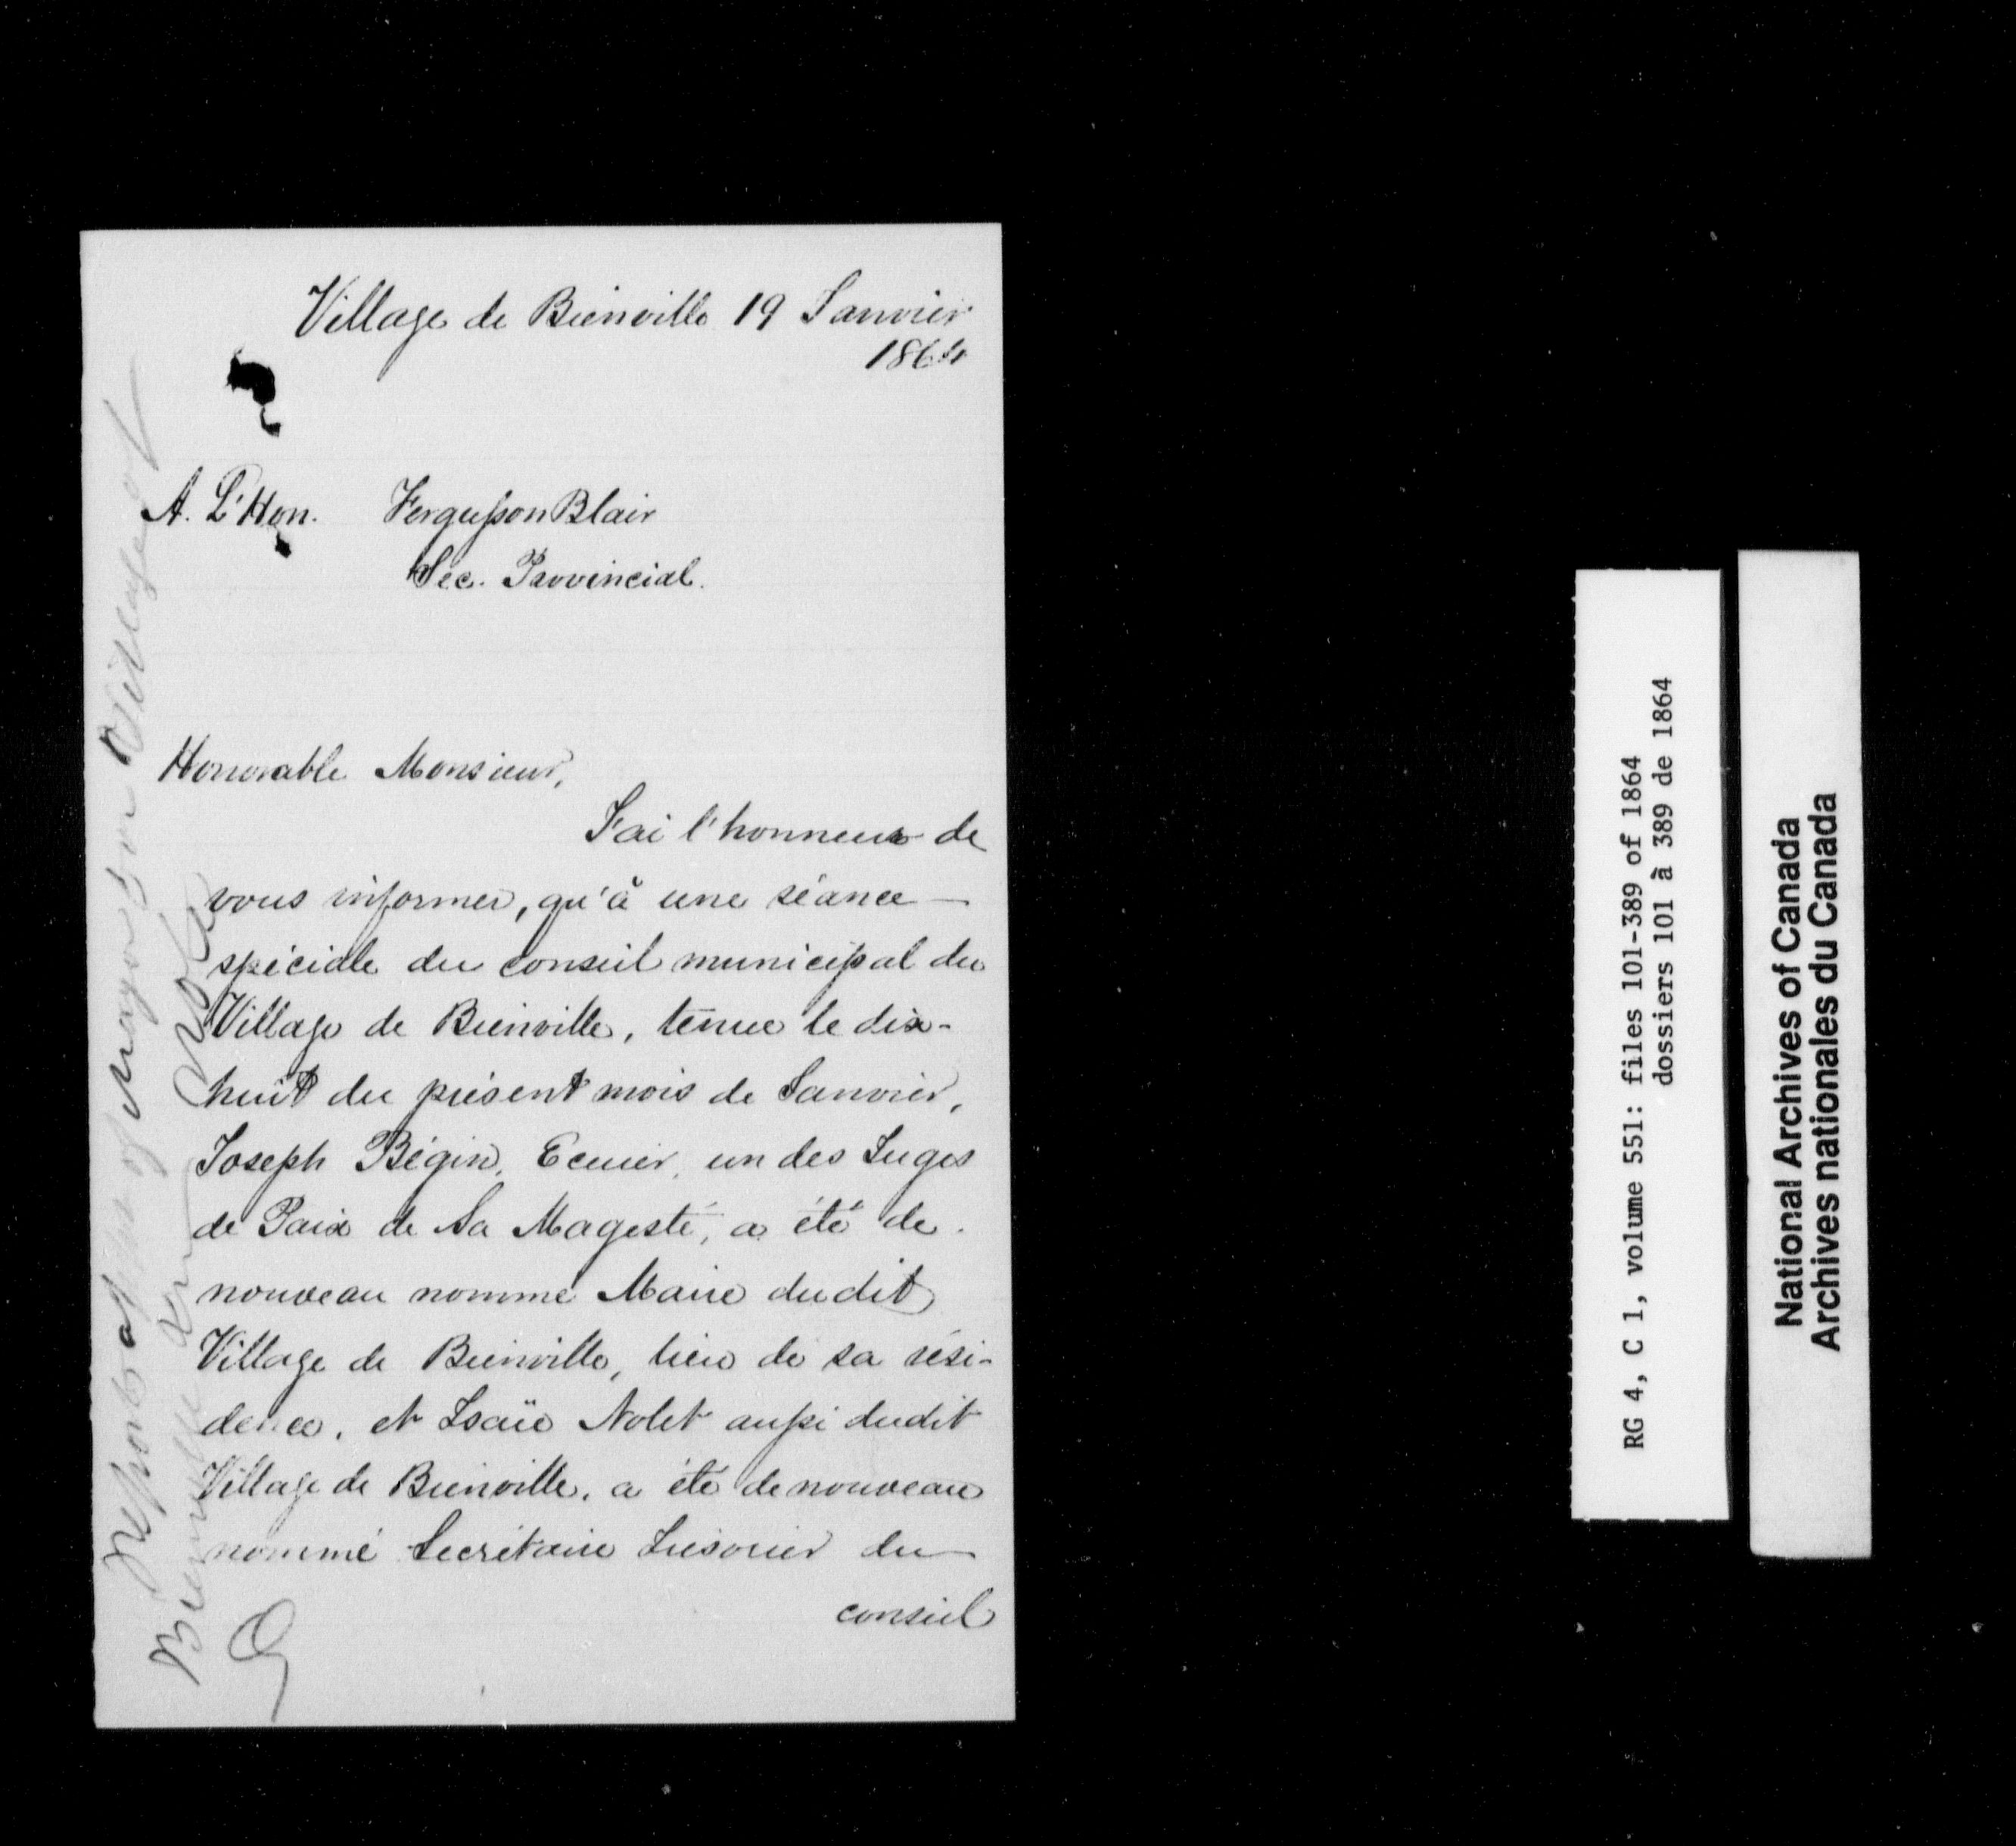 Village de Bienville 19 Janvier
1864
A. L'Hon. Fergusson Blair
Sec. Provincial.
Honorable Monsieur,
J'ai l'honneur de
vous informer, qu'à une séance —
spéciale du conseil municipal du
Village de Bienville, tenue le dix-
huit du présent mois de Janvier,
Joseph Bégin, Ecuier, un des Juges
de Paix de Sa Magesté, a été de
nouveau nommé Maire dudit
Village de Bienville, lieu de sa rési-
dence, et Isaïe Nolet aussi dudit
Village de Bienville, a été de nouveau
nommé Secrétaire Trésorier du
conseil
Report of Mayor for Village of
Bienville
RG 4, C 1, volume 551: files 101-389 of 1864
dossiers 101 à 389 de 1864
National Archives of Canada
Archives nationales du Canada